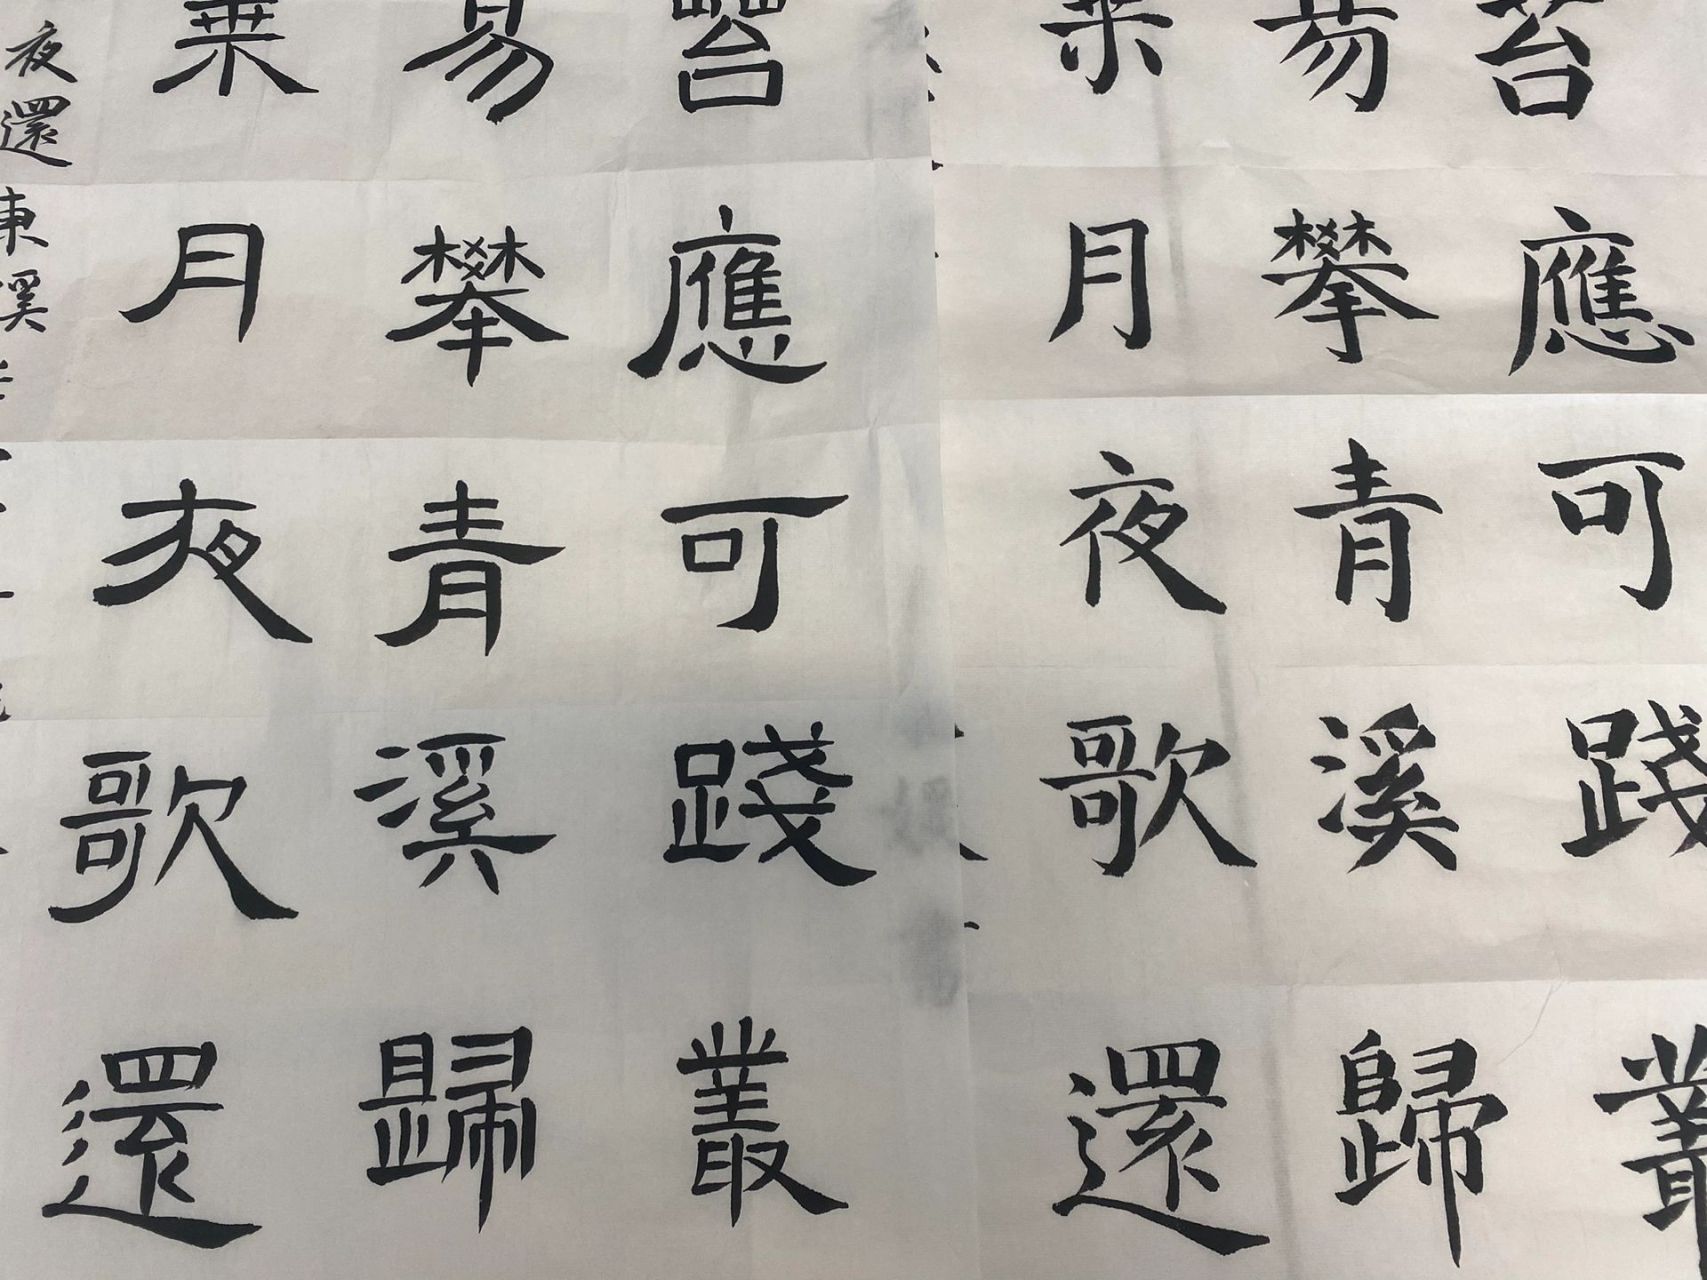 苔應可踐叢
易攀青溪歸
月夜歌還
苔應可踐叢
易攀青溪歸
月夜歌還
夜還東溪